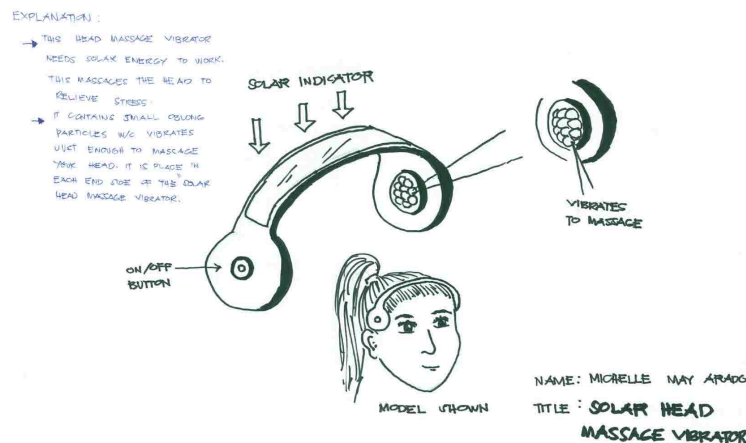 EXPLANATION:
→ THIS HEAD MASSAGE VIBRATOR
NEEDS SOLAR ENERGY TO WORK.
THIS MASSAGES THE HEAD TO
RELIEVE STRESS.
→ IT CONTAINS SMALL OBLONG
PARTICLES W/C VIBRATES
JUST ENOUGH TO MASSAGE
YOUR HEAD. IT IS PLACE IN
EACH END SIDE OF THE SOLAR
HEAD MASSAGE VIBRATOR.
SOLAR INDICATOR
VIBRATES
TO MASSAGE
ON/OFF
BUTTON
MODEL SHOWN
NAME: MICHELLE MAY
TITLE: SOLAR HEAD
MASSAGE VIBRATOR